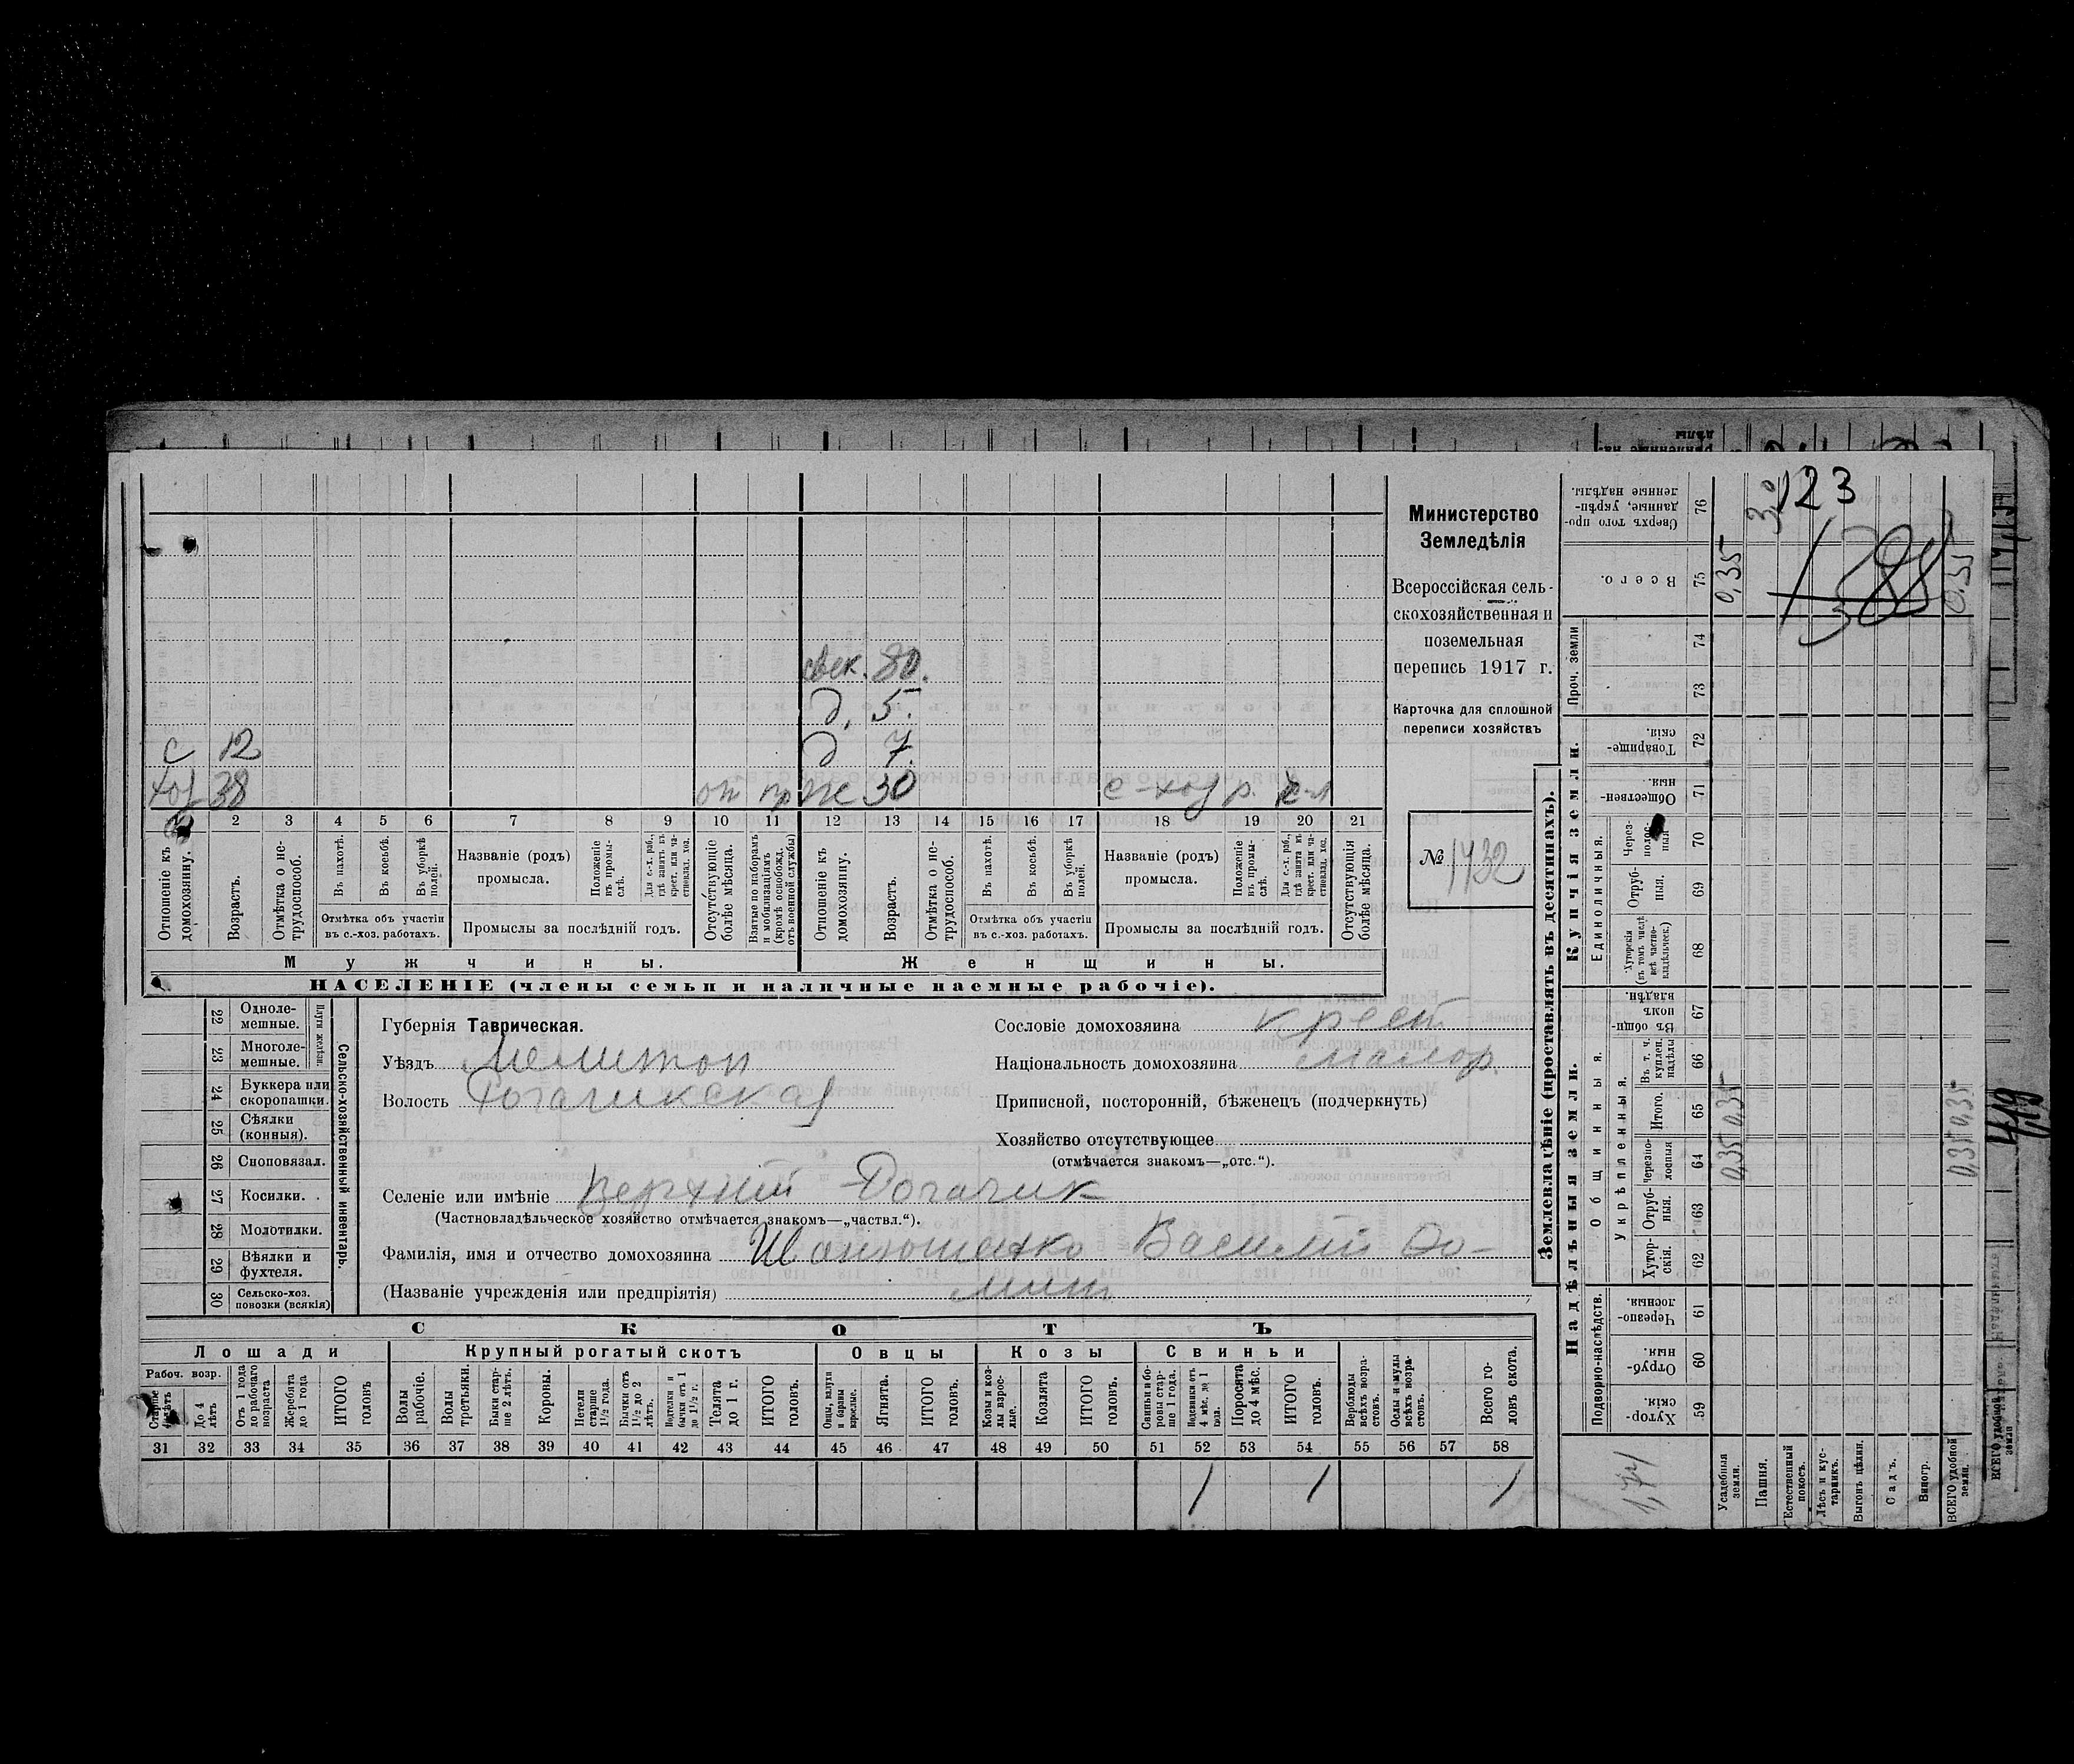 свек. 80.
д. 5.
с 12 д 7.
хоз 38 оп пр ж 30 с-хоз р. к-л
1 2 3 4 5 6 7 8 9 10 11 12 13 14 15 16 17 18 19 20 21
Отношеніе къ домохозяину.
Возрастъ.
Отмѣтка о не-трудоспособ.
Въ пахотѣ.
Въ косьбѣ.
Въ уборкѣ полей.
Отмѣтка объ участіи
въ с.-хоз. работахъ.
Названіе (родъ)
промысла.
Положеніе въ промы-слѣ.
Для с.-х. раб., гдѣ занятъ въ крест. или ча-стновлад. хоз.
Промыслы за послѣдній годъ.
Отсутствующіе болѣе мѣсяца.
Взятые по наборамъ и мобилизаціямъ (кромѣ освобожд. отъ военной службы)
Отношеніе къ домохозяину.
Возрастъ.
Отмѣтка о не-трудоспособ.
Въ пахотѣ.
Въ косьбѣ.
Въ уборкѣ полей.
Отмѣтка объ участіи
въ с.-хоз. работахъ.
Названіе (родъ)
промысла.
Положеніе въ промы-слѣ.
Для с.-х. раб., гдѣ занята въ крест. или ча-стновлад. хоз.
Промыслы за послѣдній годъ.
Отсутствующія болѣе мѣсяца.
Мужчины. Женщины.
НАСЕЛЕНІЕ (члены семьи и наличные наемные рабочіе).
Министерство
Земледѣлія
Всероссійская сель-
скохозяйственная и
поземельная
перепись 1917 г.
Карточка для сплошной
переписи хозяйствъ
№ 1732
22 Одноле-мешные.
23 Многоле-мешные.
Плуги желѣзн.
24 Буккера или скоропашки.
25 Сѣялки (конныя).
26 Сноповязал.
27 Косилки.
28 Молотилки.
29 Вѣялки и фухтеля.
30 Сельско-хоз. повозки (всякія)
Сельско-хозяйственный инвентарь.
Губернія Таврическая.
Уѣздъ Мелитоп
Волость Рогачикская
Сословіе домохозяина крест.
Національность домохозяина малор.
Приписной, посторонній, бѣженецъ (подчеркнуть)
Хозяйство отсутствующее
(отмѣчается знакомъ—„отс.“).
Селеніе или имѣніе Верхний Рогачик
(Частновладѣльческое хозяйство отмѣчается знакомъ—„частвл.“).
Фамилія, имя и отчество домохозяина Иванюшенко Василий До-
(Названіе учрежденія или предпріятія) мит
СКОТЪ
Лошади Крупный рогатый скотъ Овцы Козы Свиньи
Рабоч. возр.
Старше 4 лѣтъ
До 4 лѣтъ
Отъ 1 года до рабочаго возраста
Жеребята до 1 года
ИТОГО головъ
Волы рабочіе.
Волы третьяки.
Быки стар-ше 2 лѣтъ.
Коровы.
Нетели старше 1½ года.
Бычки отъ 1½ до 2 лѣтъ.
Подтелки и бычки отъ 1 до 1½ г.
Телята до 1 г.
ИТОГО головъ.
Овцы, валухи и бараны взрослые.
Ягнята.
ИТОГО головъ.
Козы и коз-лы взрос-лые.
Козлята
ИТОГО головъ.
Свиньи и бо-ровы стар-ше 1 года.
Подсвинки отъ 4 мѣс. до 1 года.
Поросята до 4 мѣс.
ИТОГО головъ.
Верблюды всѣхъ возра-стовъ.
Ослы и мулы всѣхъ возра-стовъ.
Всего го-ловъ скота.
31 32 33 34 35 36 37 38 39 40 41 42 43 44 45 46 47 48 49 50 51 52 53 54 55 56 57 58
1 1 1
Землевладѣніе (проставлять въ десятинахъ).
Надѣльныя земли. Купчія земли.
Подворно-наслѣдств.
Общинныя.
Укрѣпленныя.
Единоличныя.
Проч. земли
59 Хутор-скія.
60 Отруб-ныя.
61 Черезпо-лосныя.
62 Хутор-скія.
63 Отруб-ныя.
64 Черезпо-лосныя
65 Итого.
66 Въ т. ч. куплен. надѣлы
67 Въ общи-номъ владѣн.
68 Хуторскія (въ томъ числѣ всѣ частно-владѣльческ.)
69 Отруб-ныя.
70 Через-полос-ныя
71 Обществен-ныя.
72 Товарище-скія.
73
74
75 Всего.
76 Сверхъ того про-данные, укрѣп-ленные надѣлы.
Усадебныя земли.
Пашня.
Естественный покосъ.
Лѣсъ и кус-тарникъ.
Выгонъ цѣлин.
Садъ.
Виногр.
ВСЕГО удобной земли.
0,35 0,35 0,35
0,35 0,35 0,35
3,0
123